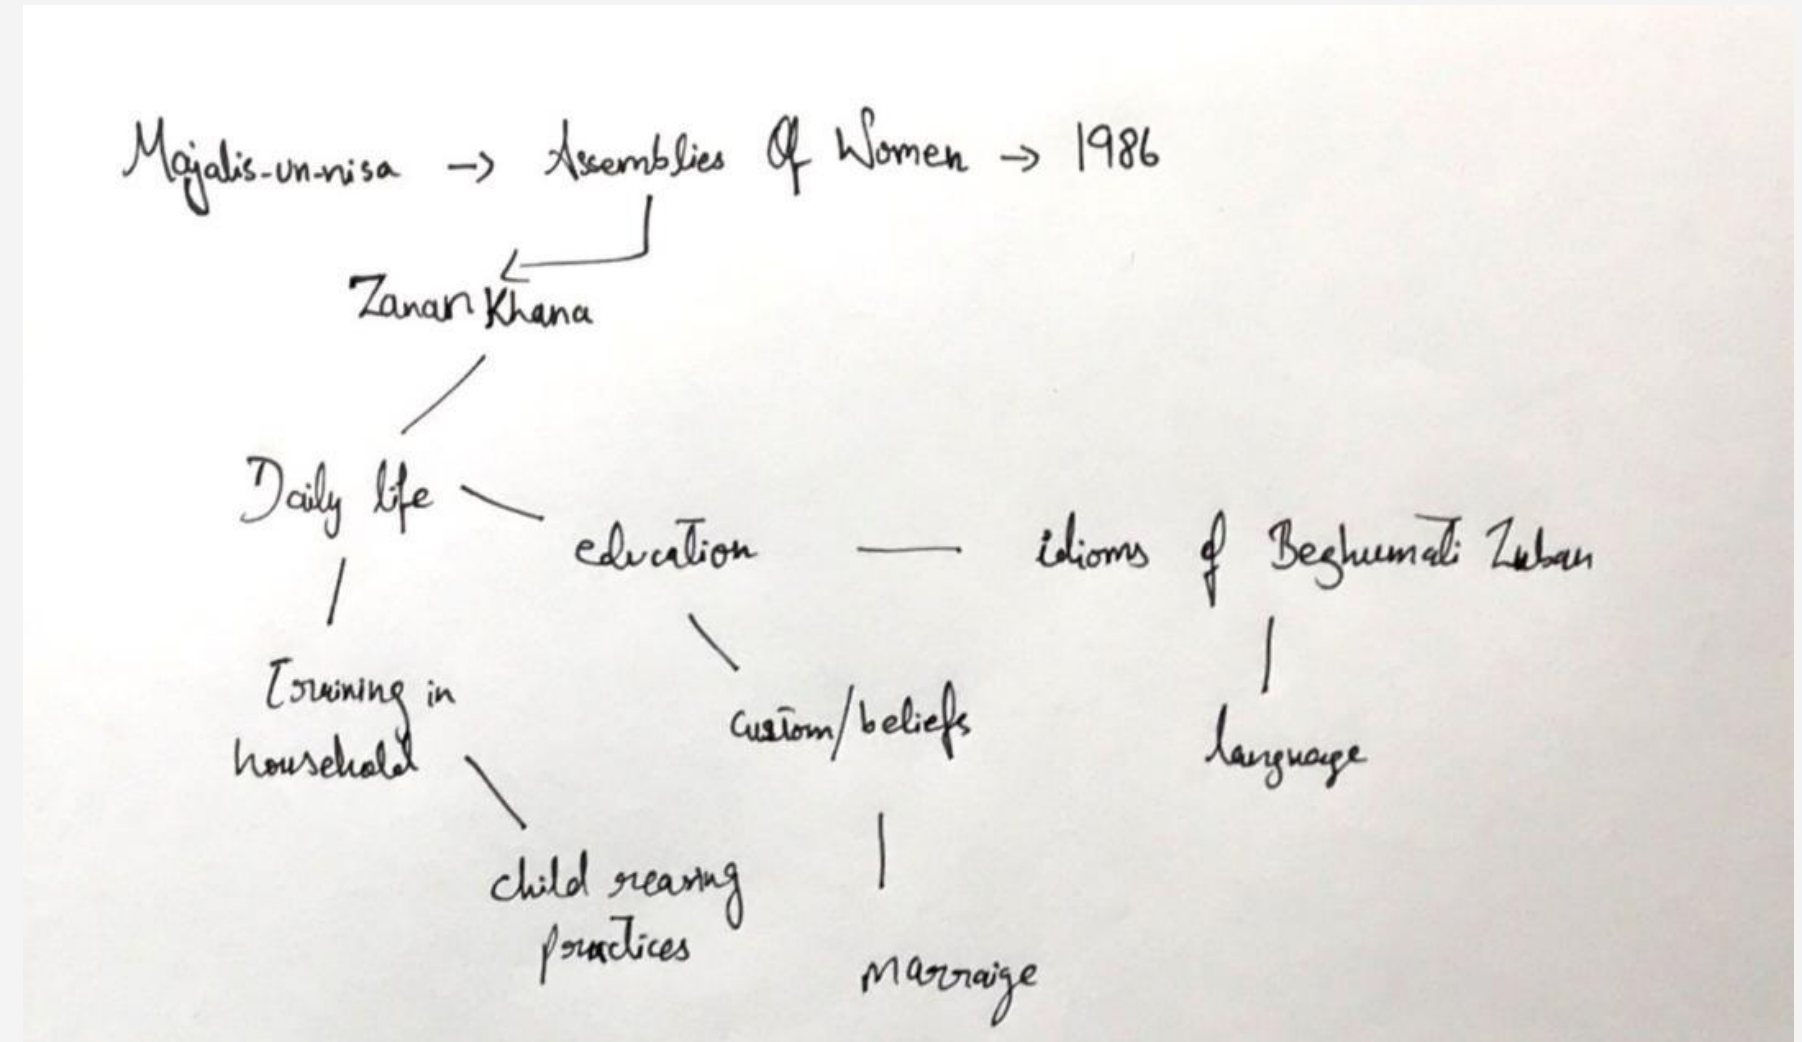 Majalis-un-nisa → Assemblies Of Women → 1986
Zanan Khana
Daily life
education — idioms of Beghumati Zuban
Training in
household
custom/beliefs
language
child rearing
practices
Marraige